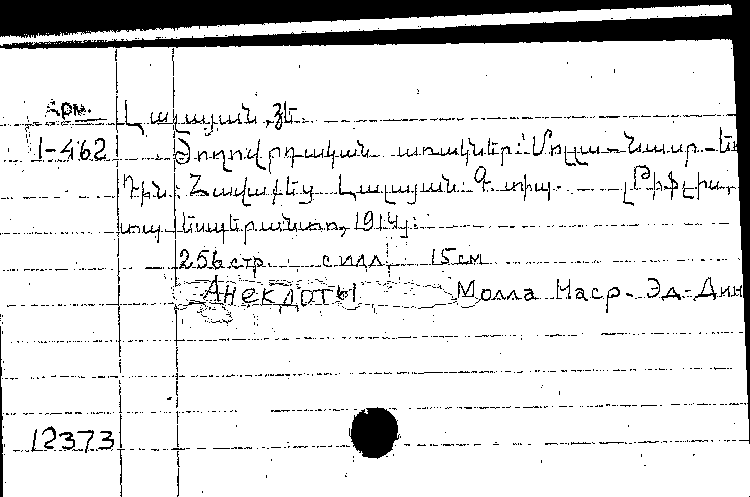 Арм. Լալայան, Յե.
1-462 Ժողովրդական առակներ: Մոլլա-Նասր-եդ
Դին: Հավաքեց Լալայան: Գ. տպ. Թիֆլիս,
տպ. էսպերանտո, 1914թ:
256 стр. с илл 15 см
Анекдоты Молла Наср-Эд-Дин
12373